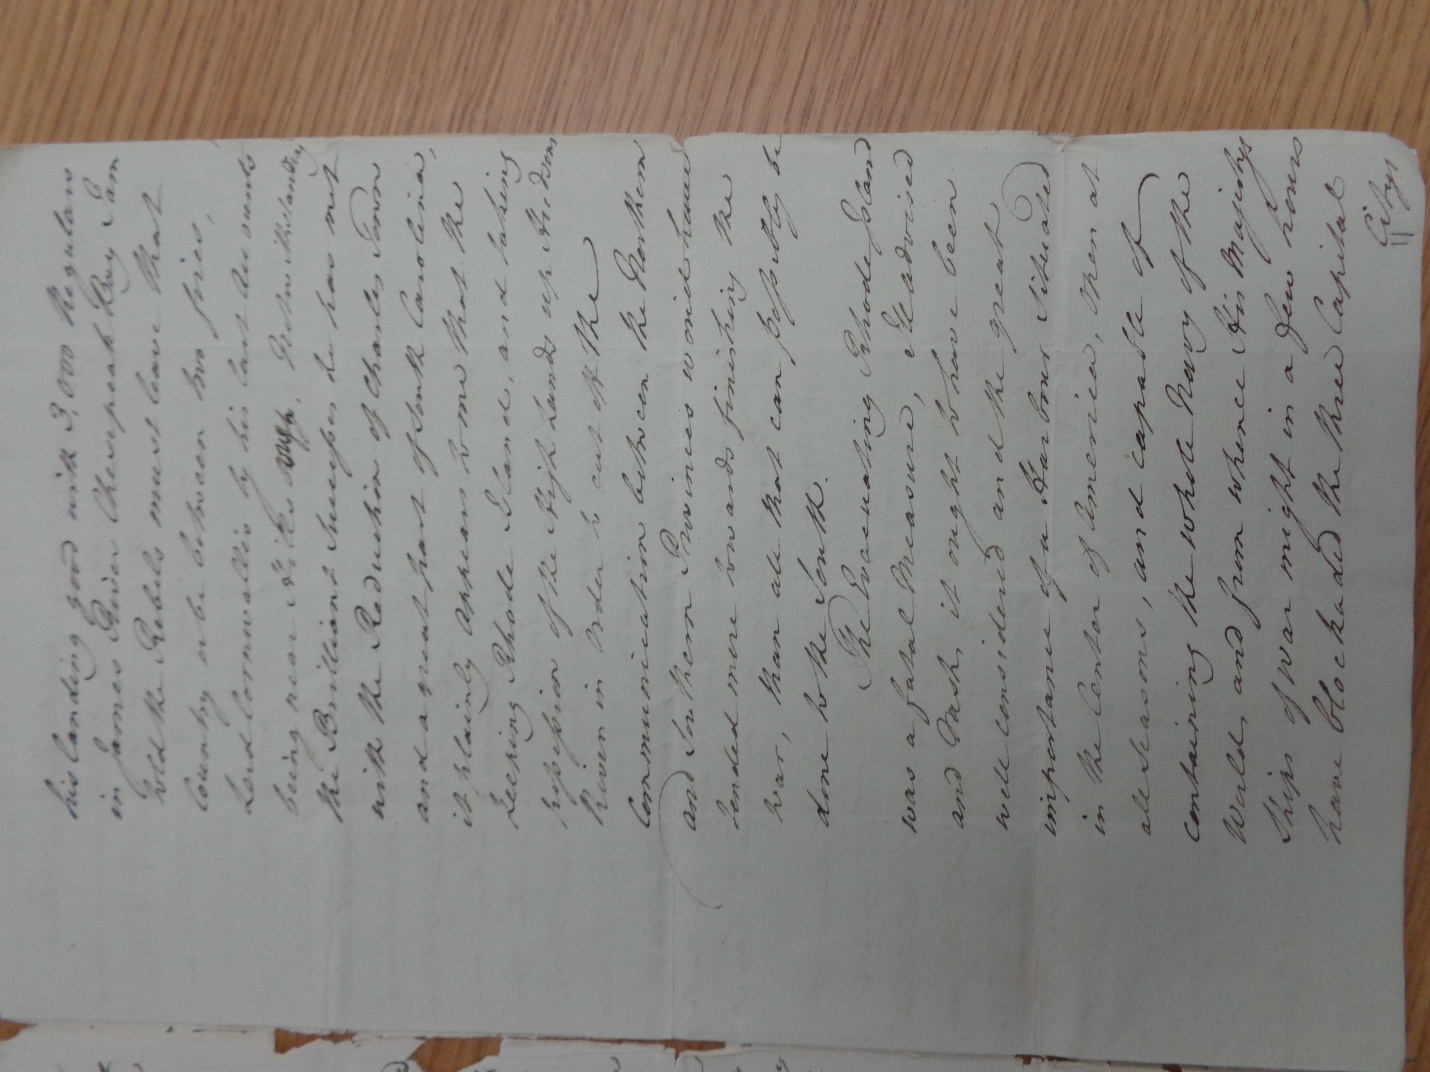 his landing good with 3,000 Regulars
in James River Chesepeak Bay I am
told the Rebels must leave that
Country or be between two fires,
Lord Cornwallis by his last accounts
being near Notwithstanding
the Brilliant Success he has met
with the Reduction of Charles Town
and a great part of South Carolina,
it plainly appears to me that the
keeping Rhode Island, and taking
possession of the High Lands up Hudsons
River in order to cut off the
Communication between the Northern
and Southern Provinces would have
tended more towards finishing the
war, than all that can possibly be
done to the South.
The Evacuating Rhode Island
was a fatal Measure, Ill advised
and Rash, it ought to have been
well considered and the great
importance of a Harbour situated
in the Center of America, Open at
all seasons, and capable of
containing the whole Navy of the
World, and from whence His Majestys
Ships of war might in a few hours
have blockaded the three Capital
Citys